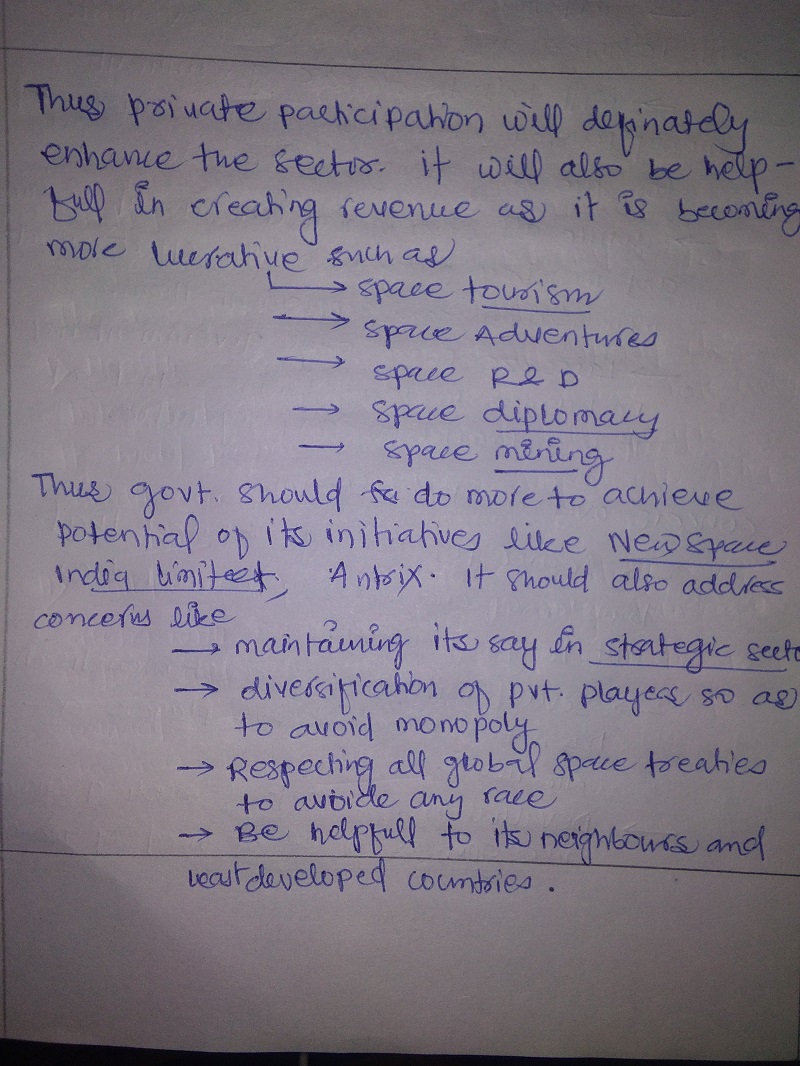 Thus private participation will definately
enhance the sector. it will also be help-
full in creating revenue as it is becoming
more lucrative such as
→ space tourism
→ space Adventures
→ space R & D
→ space diplomacy
→ space mining
Thus govt. should do more to achieve
potential of its initiatives like New space
India limited, Antrix. It should also address
concerns like
→ maintaining its say in strategic secto
→ diversification of pvt. players so as
to avoid monopoly
→ Respecting all global space treaties
to avoide any race
→ Be helpfull to its neighbours and
least developed countries.